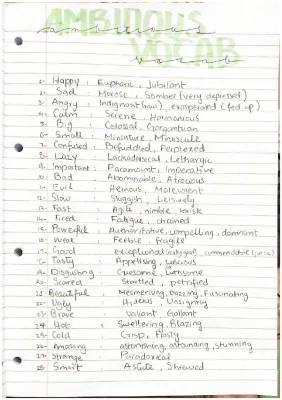 AMBITIOUS
VOCAB
ambitious
vocab
1- Happy : Euphoric, Jubilant
2- Sad : Morose, Somber (very depressed)
3- Angry : Indignant, exasperated (fed up)
4- Calm : Serene, Harmonious
5- Big : Colossal, Gargantuan
6- Small : Miniature, Minuscule
7- Confused : Befuddled, Perplexed
8- Lazy : Lackadaisical, Lethargic
9- Important : Paramount, Imperative
10- Bad : Abominable, Atrocious
11- Evil : Heinous, Malevolent
12- Slow : Sluggish, Leisurely
13- Fast : Agile, nimble, brisk
14- Tired : Fatigue, drained
15- Powerful : Authoritative, compelling, dominant
16- Weak : Feeble, fragile
17- Good : exceptional
18- Tasty : Appetising, Luscious
19- Disgusting : Gruesome, Loathsome
20- Scared : Startled, petrified
21- Beautiful : Mesmerising, Dazzling, Fascinating
22- Ugly : Hideous, Unsightly
23- Brave : Valiant, Gallant
24- Hot : Sweltering, Blazing
25- Cold : Crisp, Frosty
26- Amazing : astonishing, astounding, stunning
27- Strange : Paradoxical
28- Smart : Astute, Shrewd